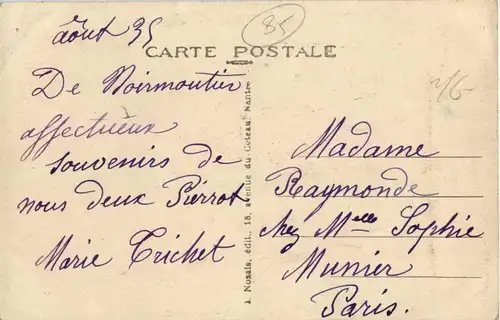 août 35
85
CARTE POSTALE
2/6
De Noirmoutier
affectueux
souvenirs de
nous deux Pierrot
Marie Trichet
A. Nozais, édit., 18, avenue du Coteau, Nantes
Madame
Raymonde
chez Melle Sophie
Munier
Paris.